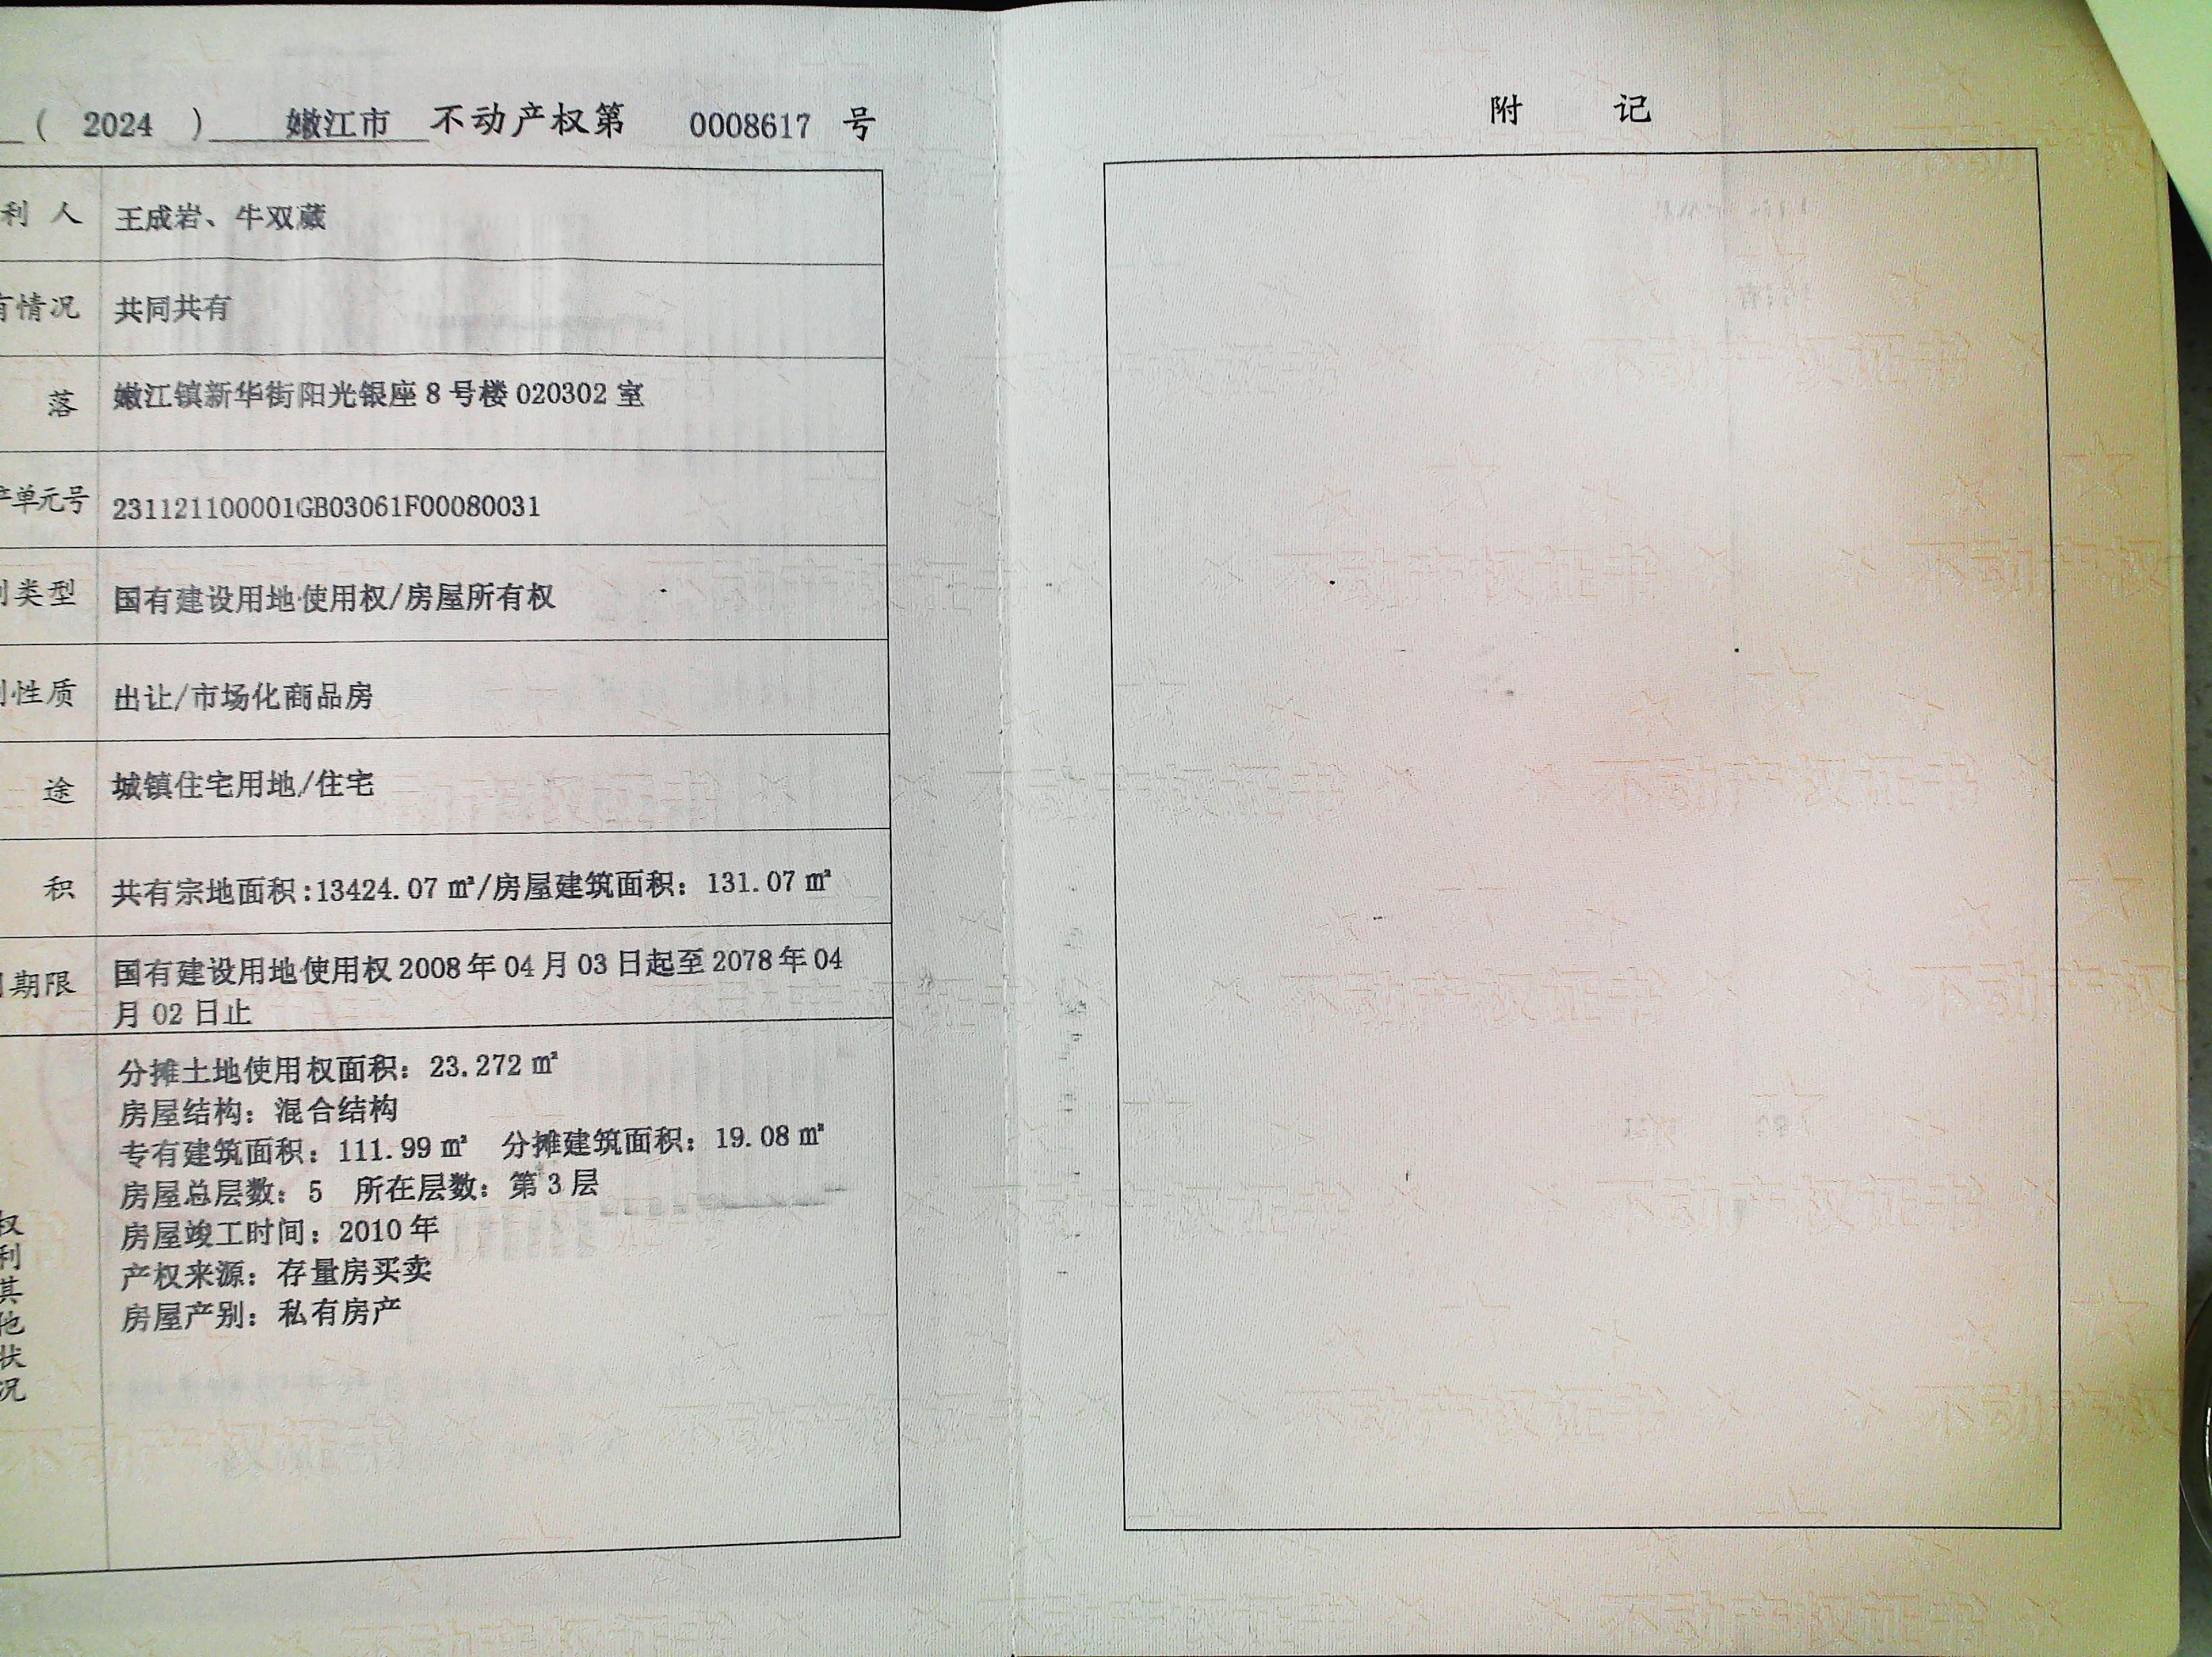 ( 2024 ) 嫩江市 不动产权第 0008617 号
利 人 王成岩、牛双葳
有情况 共同共有
落 嫩江镇新华街阳光银座 8 号楼 020302 室
产单元号 231121100001GB03061F00080031
利类型 国有建设用地使用权/房屋所有权
利性质 出让/市场化商品房
途 城镇住宅用地/住宅
积 共有宗地面积:13424.07 ㎡/房屋建筑面积: 131.07 ㎡
用期限 国有建设用地使用权 2008 年 04 月 03 日起至 2078 年 04
月 02 日止
权利其他状况
分摊土地使用权面积: 23.272 ㎡
房屋结构: 混合结构
专有建筑面积: 111.99 ㎡ 分摊建筑面积: 19.08 ㎡
房屋总层数: 5 所在层数: 第 3 层
房屋竣工时间: 2010 年
产权来源: 存量房买卖
房屋产别: 私有房产
附 记